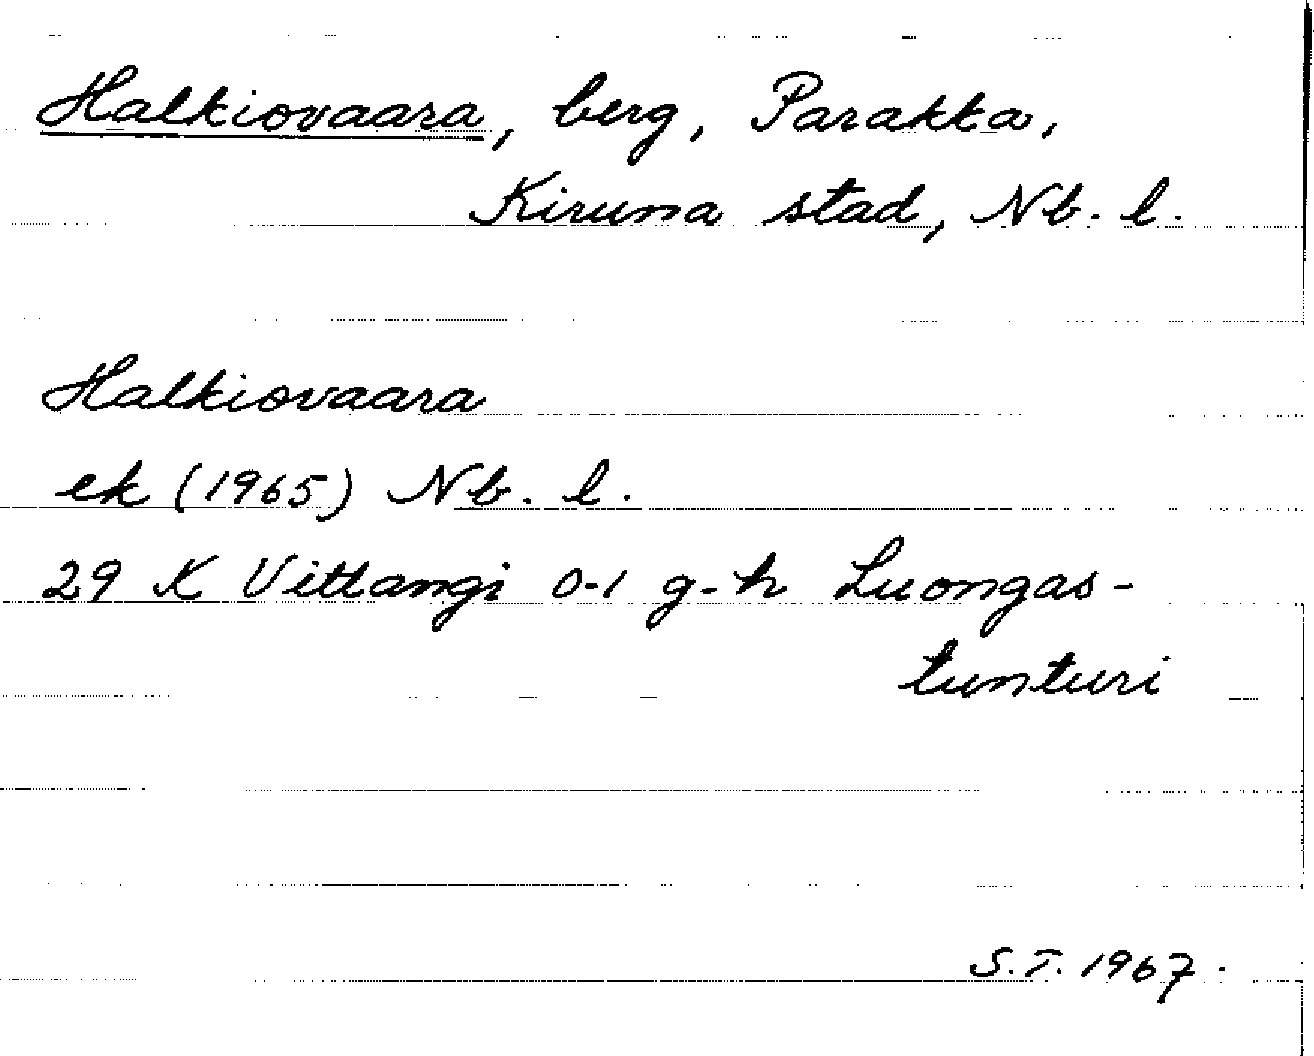 Halkiovaara, berg, Parakka,
Kiruna stad, Nb. l.
Halkiovaara
ek (1965) Nb. l.
29 K Vittangi 0-1 g-h Luongas-
tunturi
S.T. 1967.